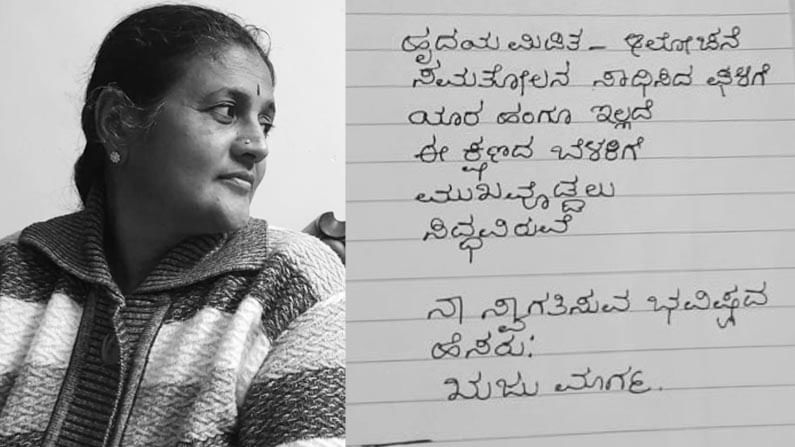 ಹೃದಯ ಮಿಡಿತ - ಆಲೋಚನೆ
ಸಮತೋಲನ ಸಾಧಿಸಿದ ಘಳಿಗೆ
ಯಾರ ಹಂಗೂ ಇಲ್ಲದೆ
ಈ ಕ್ಷಣದ ಬೆಳಕಿಗೆ
ಮುಖವೊಡ್ಡಲು
ಸಿದ್ಧವಿರುವೆ
ನಾ ಸ್ವಾಗತಿಸುವ ಭವಿಷ್ಯದ
ಹೆಸರು:
ಋಜು ಮಾರ್ಗ.